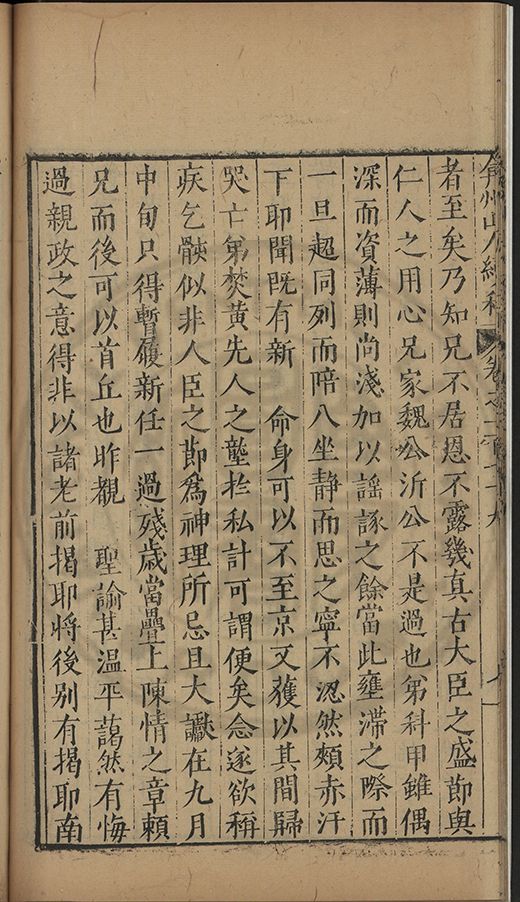 弇州山人續稿 卷之一百
者至矣乃知兄不居恩不露幾真古大臣之盛節與
仁人之用心兄家魏公沂公不是過也弟科甲雖偶
深而資薄則尚淺加以謡諑之餘當此壅滯之際而
一旦超同列而陪八坐靜而思之寧不㴰然頰赤汗
下耶聞既有新 命身可以不至京又獲以其間歸
哭亡弟焚黃先人之壟扵私計可謂便矣念遂欲稱
疾乞骸似非人臣之節為神理所忌且大讞在九月
中旬只得暫履新任一過殘歲當疊上陳情之章頼
兄而後可以首丘也昨覩 聖諭甚溫平藹然有悔
過親政之意得非以諸老前揭耶將後别有揭耶南